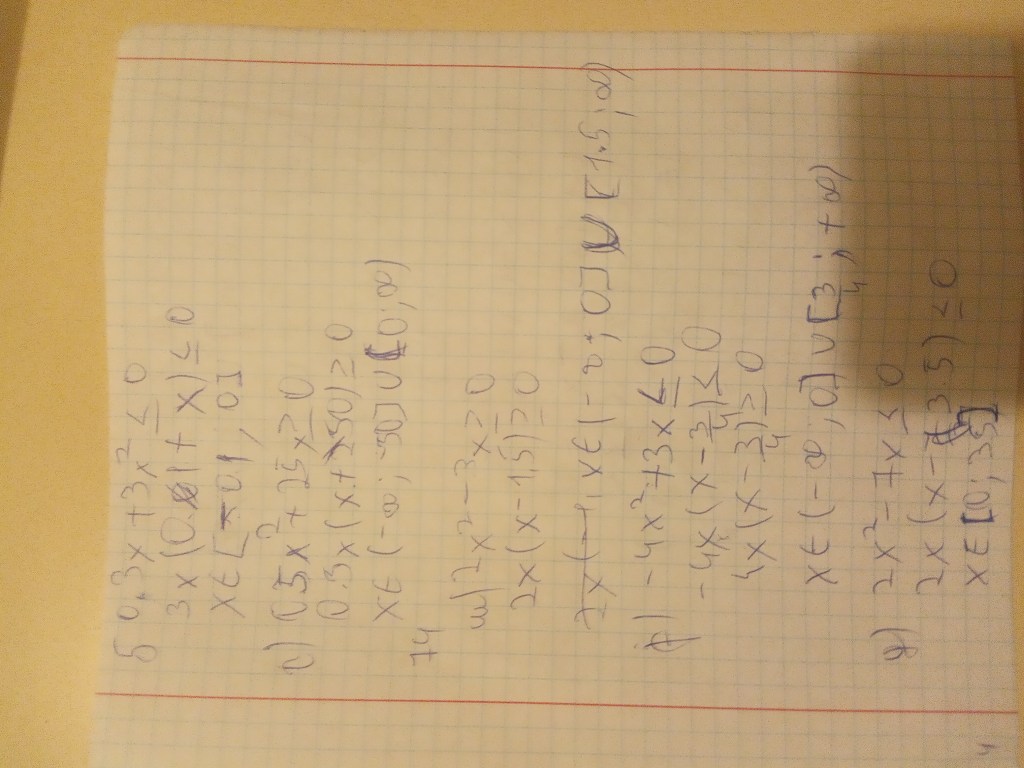 б 0.3x + 3x² ≤ 0
3x (0.1 + x) ≤ 0
x ∈ [-0.1, 0]
c) 0.5x² + 25x ≥ 0
0.5x (x + 50) ≥ 0
x ∈ (-∞; -50] ∪ [0; ∞)
74
a) 2x² - 3x ≥ 0
2x (x - 1.5) ≥ 0
x ∈ (-∞; 0] ∪ [1.5; ∞)
b) -4x² + 3x ≤ 0
-4x (x - 3/4) ≤ 0
4x (x - 3/4) ≥ 0
x ∈ (-∞; 0] ∪ [3/4; +∞)
2x² - 7x ≤ 0
2x (x - 3.5) ≤ 0
x ∈ [0; 3.5]